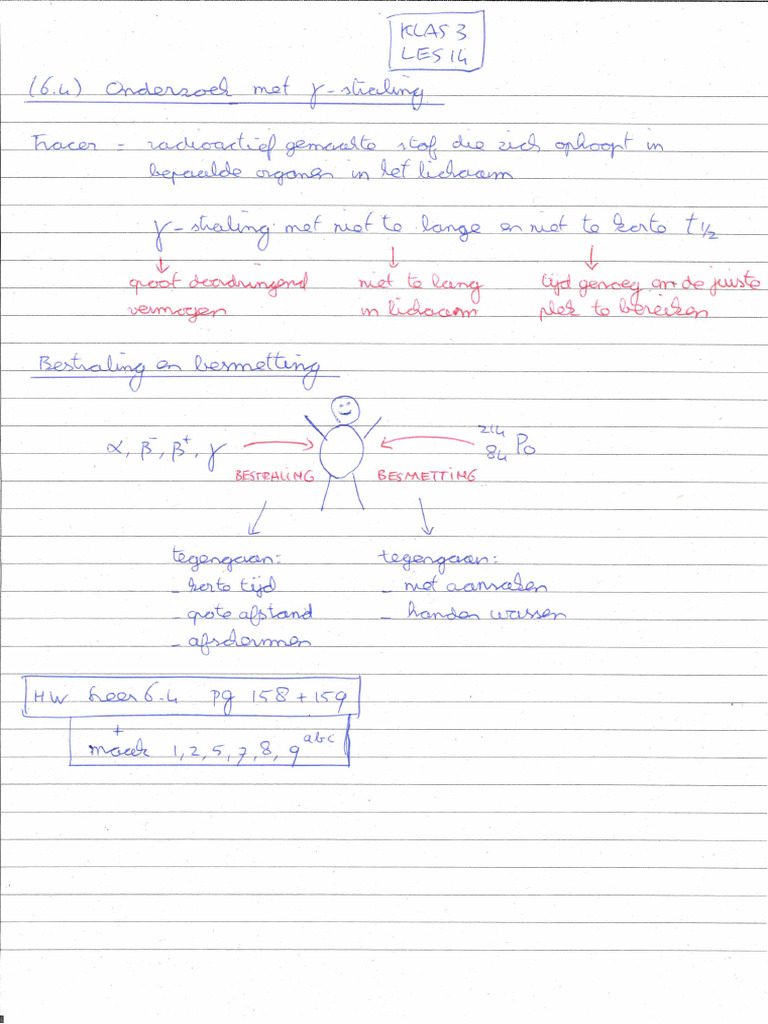 KLAS 3
LES 14
(6.4) Onderzoek met γ-straling
Tracer = radioactief gemaakte stof die zich ophoopt in
bepaalde organen in het lichaam
γ-straling met niet te lange en niet te korte t½
groot doordringend niet te lang tijd genoeg om de juiste
vermogen in lichaam plek te bereiken
Bestraling en besmetting
α, β⁻, β⁺, γ ²¹⁴₈₄Po
BESTRALING BESMETTING
tegengaan: tegengaan:
- korte tijd - niet aanraken
- grote afstand - handen wassen
- afschermen
HW Leer 6.4 pg 158 + 159
+
maak 1, 2, 5, 7, 8, 9 abc